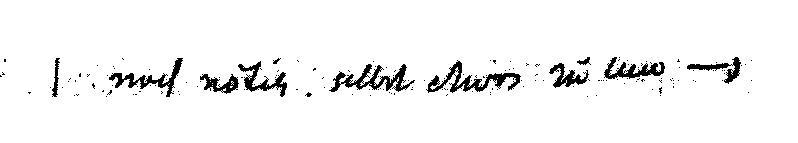 | noch nötig. selbst etwas zu tun →